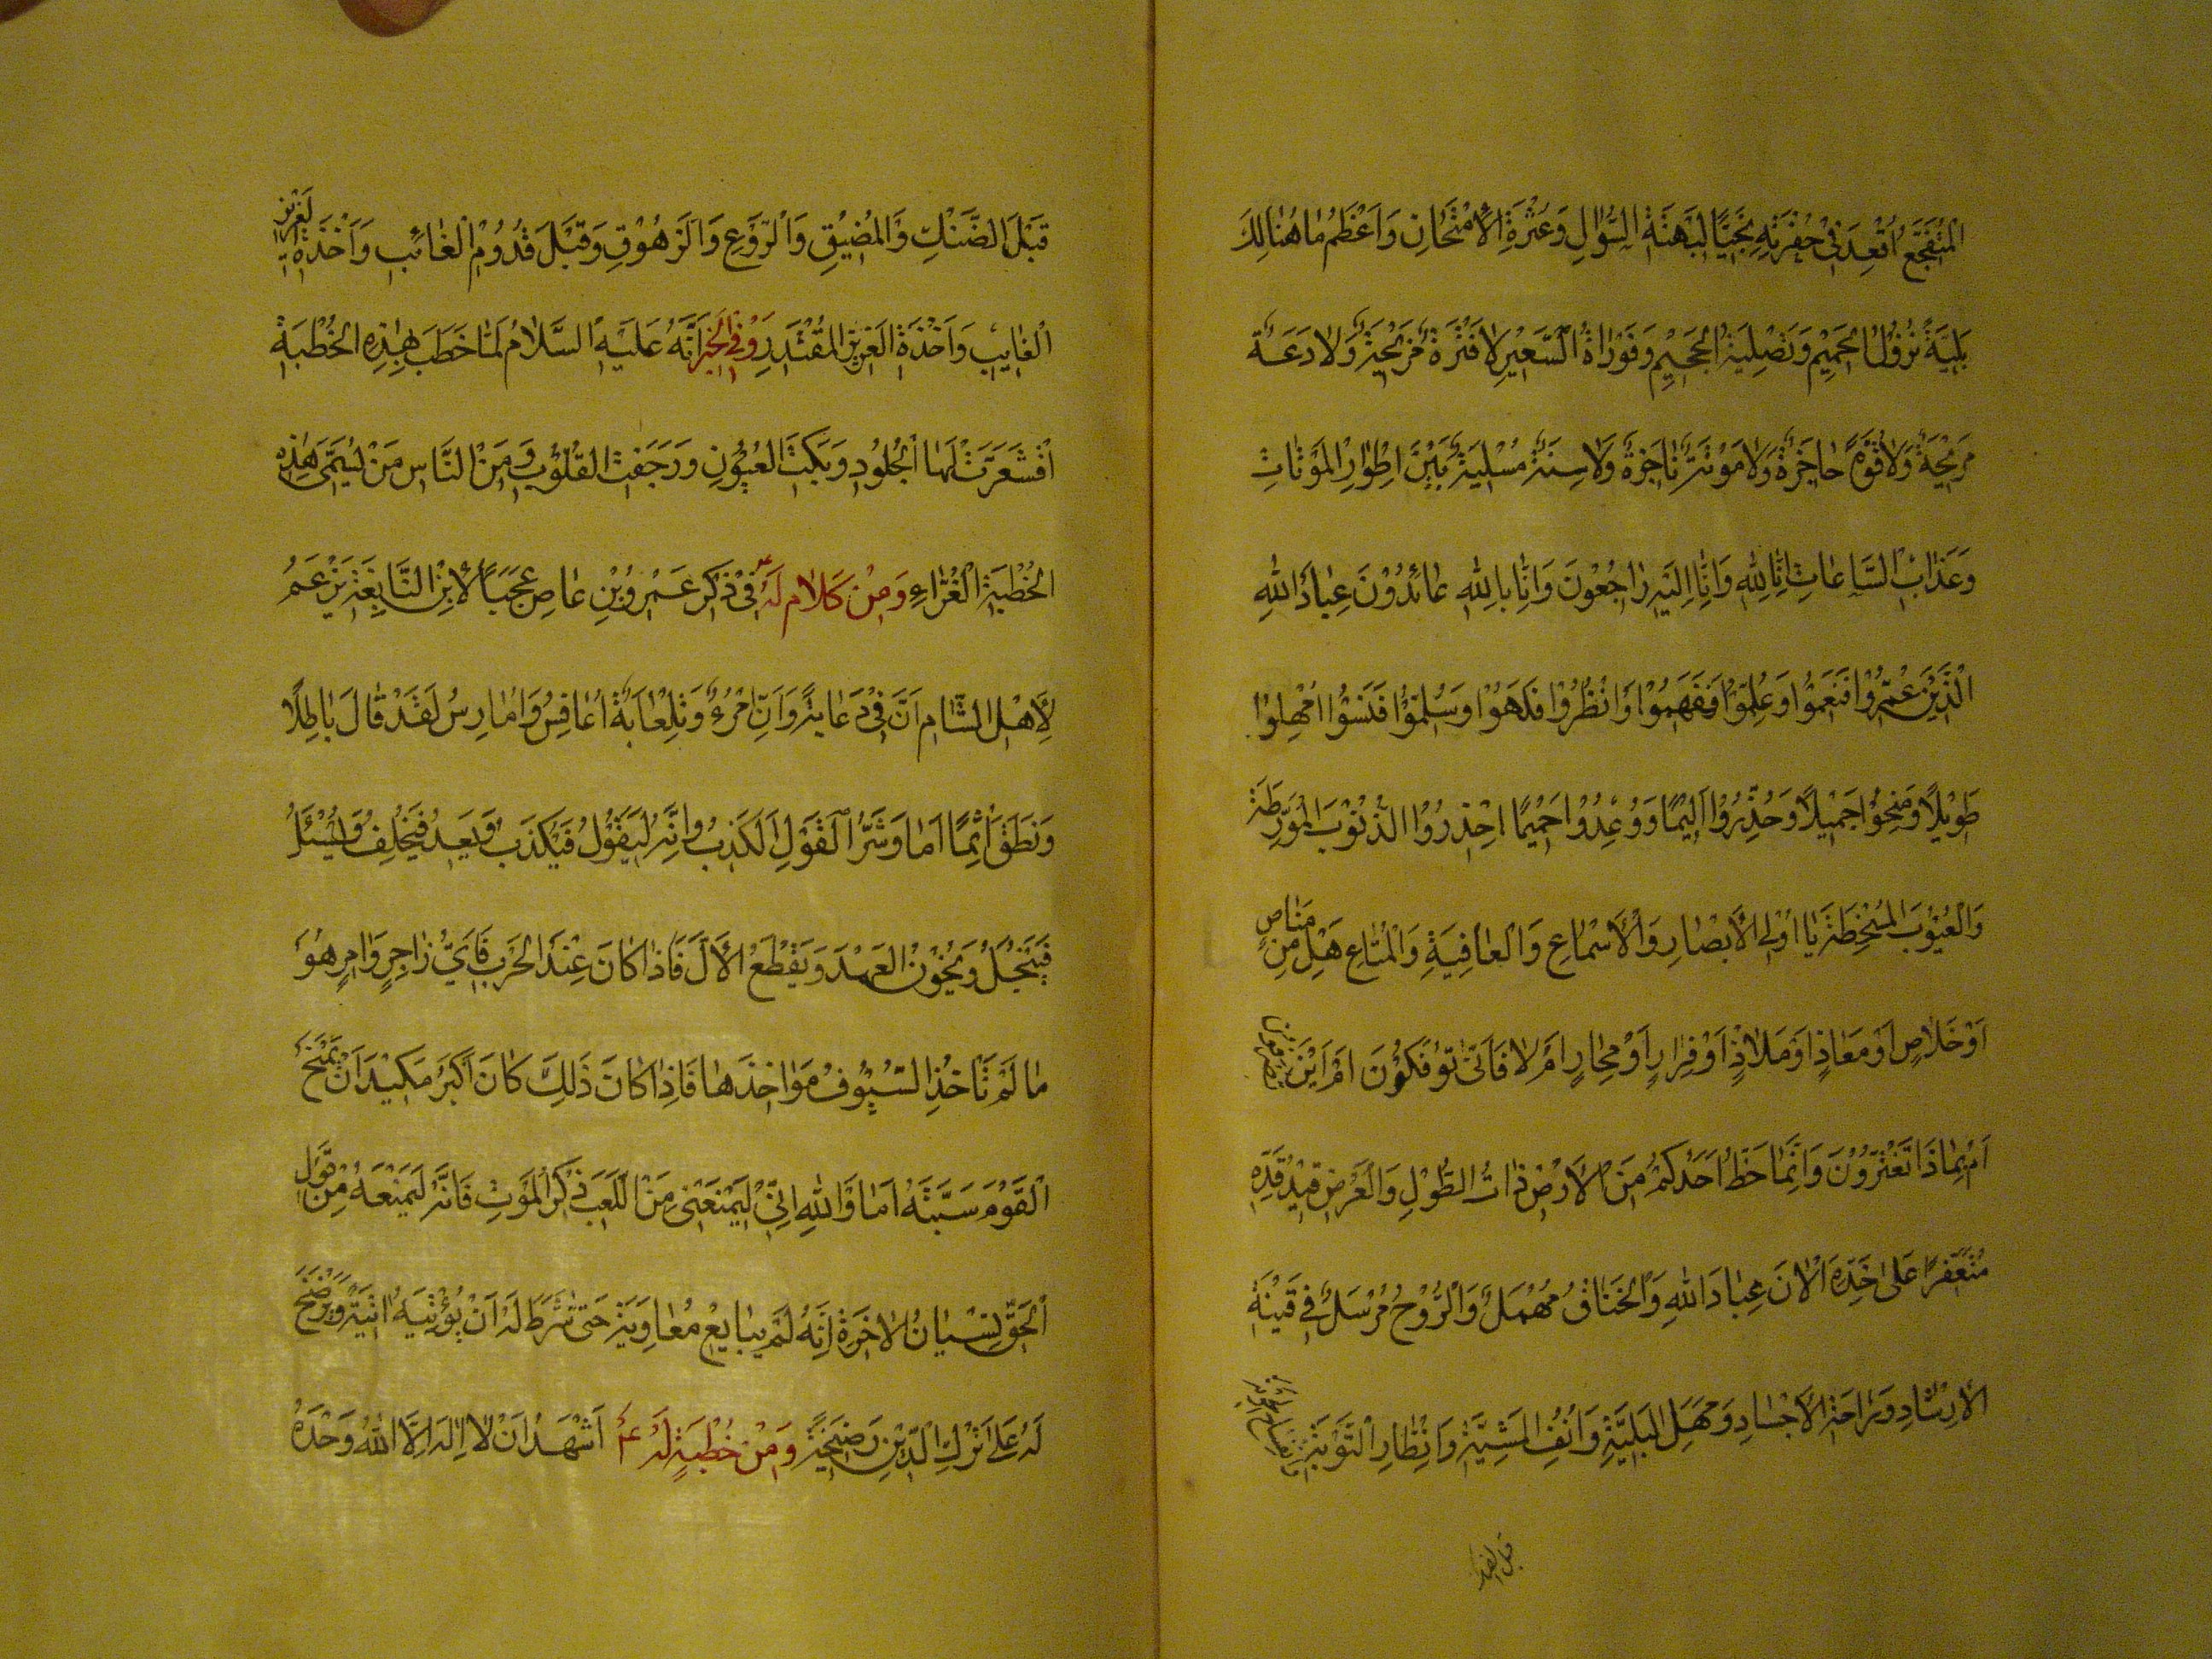 الْمُتَفَجِّعُ اُقْعِدَ فِي حُفْرَتِهِ نَجِيًّا لِبَهْتَةِ السُّؤَالِ وَعَثْرَةِ الْاِمْتِحَانِ وَاَعْظَمُ مَا هُنَالِكَ
بَلِيَّةً نُزُولُ الْحَمِيْمِ وَتَصْلِيَةُ الْجَحِيْمِ وَفَوْرَاةُ السَّعِيْرِ لَا فَتْرَةٌ مُزِيْحَةٌ وَلَا دَعَةٌ
مُرِيْحَةٌ وَلَا قُوَّةٌ حَاجِزَةٌ وَلَا مَوْتَةٌ نَاجِزَةٌ وَلَا سِنَةٌ مُسْلِيَةٌ بَيْنَ اَطْوَارِ الْمَوْتَاتِ
وَعَذَابِ السَّاعَاتِ اِنَّا لِلّٰهِ وَاِنَّا اِلَيْهِ رَاجِعُوْنَ وَاِنَّا بِاللّٰهِ عَائِذُوْنَ عِبَادَ اللّٰهِ
الَّذِيْنَ عُمِّرُوْا فَنَعِمُوْا وَعُلِّمُوْا فَفَهِمُوْا وَاُنْظِرُوْا فَلَهَوْا وَسُلِّمُوْا فَنَسُوْا اُمْهِلُوْا
طَوِيْلًا وَمُنِحُوْا جَمِيْلًا وَحُذِّرُوْا اَلِيْمًا وَوُعِدُوْا جَمِيْمًا اِحْذَرُوْا الذُّنُوْبَ الْمُوَرِّطَةَ
وَالْعُيُوْبَ الْمُسْخِطَةَ يَا اُوْلِي الْاَبْصَارِ وَالْاَسْمَاعِ وَالْعَافِيَةِ وَالْمَتَاعِ هَلْ مِنْ مَنَاصٍ
اَوْ خَلَاصٍ اَوْ مَعَاذٍ اَوْ مَلَاذٍ اَوْ فِرَارٍ اَوْ مَحَارٍ اَمْ لَا فَاَنّٰى تُؤْفَكُوْنَ اَمْ اَيْنَ تُصْرَفُوْنَ
اَمْ بِمَاذَا تَغْتَرُّوْنَ وَاِنَّمَا حَظُّ اَحَدِكُمْ مِنَ الْاَرْضِ ذَاتُ الطُّوْلِ وَالْعَرْضِ قِيْدُ قَدِّهِ
مُنْعَفِرًا عَلٰى خَدِّهِ الْاٰنَ عِبَادَ اللّٰهِ وَالْخِنَاقُ مُهْمَلٌ وَالرُّوْحُ مُرْسَلٌ فِي فَيْنَةِ
الْاِرْشَادِ وَرَاحَةِ الْاَجْسَادِ وَمَهَلِ الْبَقِيَّةِ وَاُنُفِ الْمَشِيَّةِ وَاِنْظَارِ التَّوْبَةِ
قبل الضنك
قَبْلَ الضَّنْكِ وَالْمَضِيْقِ وَالرَّوْعِ وَالزُّهُوْقِ وَقَبْلَ قُدُوْمِ الْغَائِبِ وَاَخْذَةِ الْعَزِيْزِ
الْغَايِبِ وَاَخْذَةِ الْعَزِيْزِ الْمُقْتَدِرِ وَفِي الْخَبَرِ اَنَّهُ عَلَيْهِ السَّلَامُ لَمَّا خَطَبَ بِهٰذِهِ الْخُطْبَةِ
اقْشَعَرَّتْ لَهَا الْجُلُوْدُ وَبَكَتِ الْعُيُوْنُ وَرَجَفَتِ الْقُلُوْبُ وَمِنَ النَّاسِ مَنْ يُسَمِّي هٰذِهِ
الْخُطْبَةَ الْغَرَّاءِ وَمِنْ كَلَامٍ لَهُ ع فِي ذِكْرِ عَمْرِو بْنِ عَاصٍ عَجَبًا لِابْنِ النَّابِغَةِ يَزْعَمُ
لِاَهْلِ الشَّامِ اَنَّ فِيَّ دُعَابَةً وَاَنِّي امْرُءٌ وَتِلْعَابَةٌ اُعَافِسُ وَاُمَارِسُ لَقَدْ قَالَ بَاطِلًا
وَنَطَقَ اٰثِمًا اَمَا وَشَرُّ الْقَوْلِ الْكَذِبُ وَاِنَّهُ لَيَقُوْلُ فَيَكْذِبُ وَيَعِدُ فَيُخْلِفُ وَيُسْئَلُ
فَيَبْخَلُ وَيَخُوْنُ الْعَهْدَ وَيَقْطَعُ الْاَلَّ فَاِذَا كَانَ عِنْدَ الْحَرْبِ فَاَيُّ زَاجِرٍ وَاٰمِرٍ هُوَ
مَا لَمْ تَأْخُذِ السُّيُوْفُ مَوَاخِذَهَا فَاِذَا كَانَ ذَلِكَ كَانَ اَكْبَرُ مَكِيْدَ اَنْ يَمْنَحَ
الْقَوْمَ سَبَّتَهُ اَمَا وَاللّٰهِ اِنِّي لَيَمْنَعُنِي مِنَ اللَّعِبِ ذِكْرُ الْمَوْتِ فَاِنَّهُ لَيَمْنَعُهُ مِنْ قَوْلِ
الْحَقِّ نِسْيَانُ الْاٰخِرَةِ اِنَّهُ لَمْ يُبَايِعْ مُعَاوِيَةَ حَتّٰى شَرَطَ لَهُ اَنْ يُؤْتِيَهُ اَتِيَّةً وَيَرْضَخَ
لَهُ عَلٰى تَرْكِ الدِّيْنِ رَضِيْخَةً وَمِنْ خُطْبَةٍ لَهُ ع اَشْهَدُ اَنْ لَا اِلٰهَ اِلَّا اللّٰهُ وَحْدَهُ